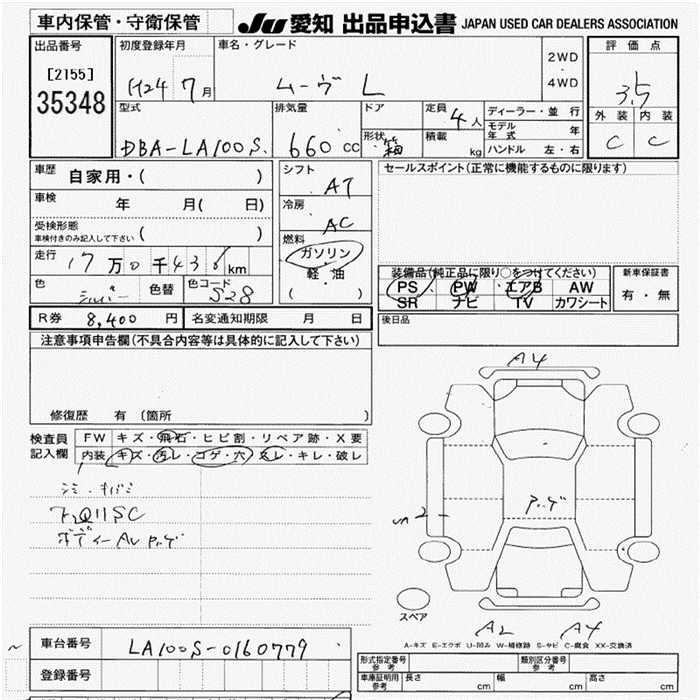 車内保管・守衛保管
JU 愛知 出品申込書 JAPAN USED CAR DEALERS ASSOCIATION
出品番号
[2155]
35348
初度登録年月
H24 7月
車名・グレード
ムーヴ L
2WD
・
4WD
評価点
3.5
外装 内装
C C
型式
DBA-LA100S
排気量
660 cc
ドア
形状 箱
定員 4人
積載 kg
ディーラー・並行
モデル年式 年
ハンドル 左・右
車歴 自家用・( )
車検 年 月( 日)
受検形態
車検付きのみ記入して下さい ( )
走行 17万0千436km
色 シルバー 色替 色コード S28
シフト
AT
冷房
AC
燃料
ガソリン
軽・油
( )
セールスポイント(正常に機能するものに限ります)
装備品(純正品に限り○をつけてください)
PS PW エアB AW
SR ナビ TV カワシート
新車保証書
有・無
後日品
R券 8,400 円 名変通知期限 月 日
注意事項申告欄(不具合内容等は具体的に記入して下さい)
修復歴 有 (箇所 )
検査員
記入欄
FW キズ・飛石・ヒビ割・リペア跡・X要
内装 キズ・汚レ・コゲ・穴・スレ・キレ・破レ
A4
スペア
A2 A4
A-キズ E-エクボ U-凹み W-補修跡 S-サビ C-腐食 XX-交換済
車台番号 LA100S-0160779
登録番号
型式指定番号 参考
類別区分番号 参考
車庫証明用 参考 長さ cm 幅 cm 高さ cm